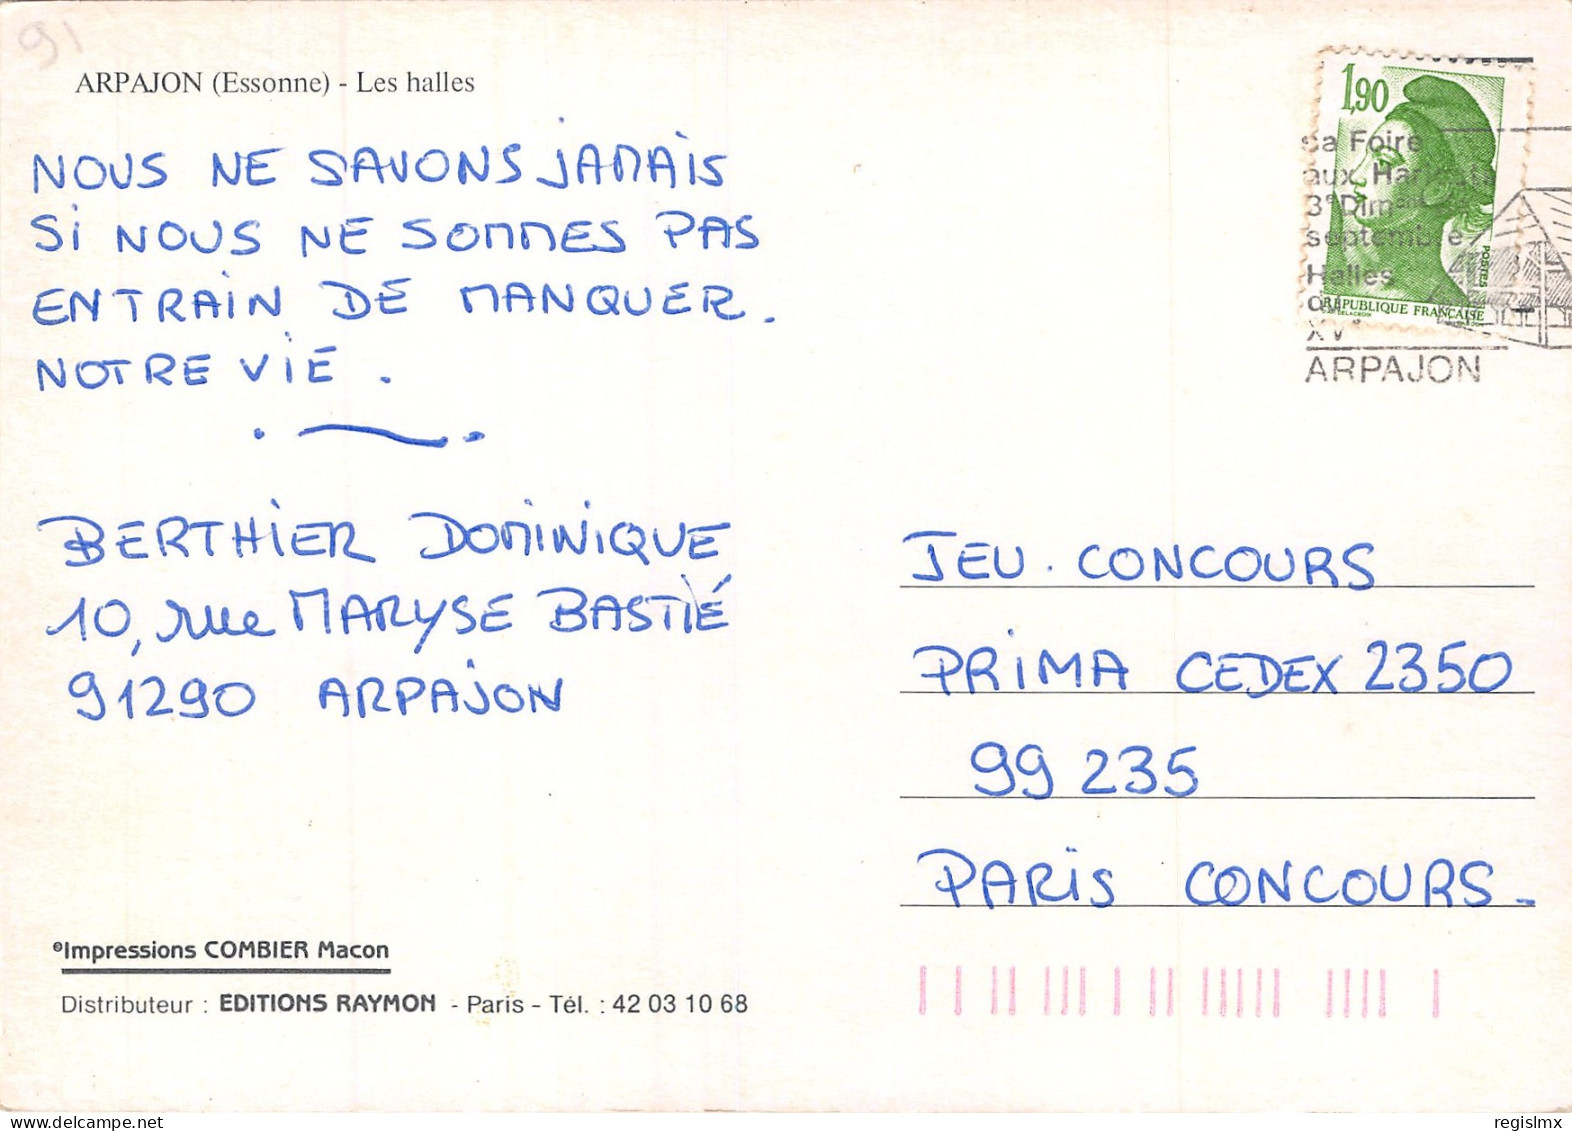 91
ARPAJON (Essonne) - Les halles
NOUS NE SAVONS JAMAIS
Si NOUS NE SOMMES PAS
EN TRAIN DE MANQUER.
NOTRE VIE.
BERTHIER DOMINIQUE
10, rue MARYSE BASTIÉ
91290 ARPAJON
©Impressions COMBIER Macon
Distributeur : EDITIONS RAYMON - Paris - Tél. : 42 03 10 68
1,90
POSTES
RÉPUBLIQUE FRANÇAISE
sa Foire
aux
3e
septembre
Halles
XVe
ARPAJON
JEU. CONCOURS
PRIMA CEDEX 2350
99 235
PARIS CONCOURS.
regislmx